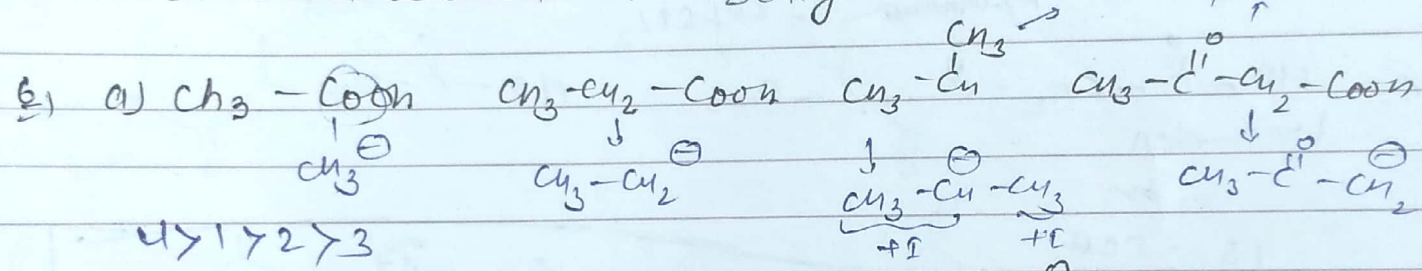 CH3
Q, a) CH3 - COOH CH3-CH2-COOH CH3-CH CH3-C-CH2-COOH
O
CH3⊖ CH3-CH2⊖ CH3-CH⊖-CH3 CH3-C-CH2⊖
O
+I +I
4>1>2>3